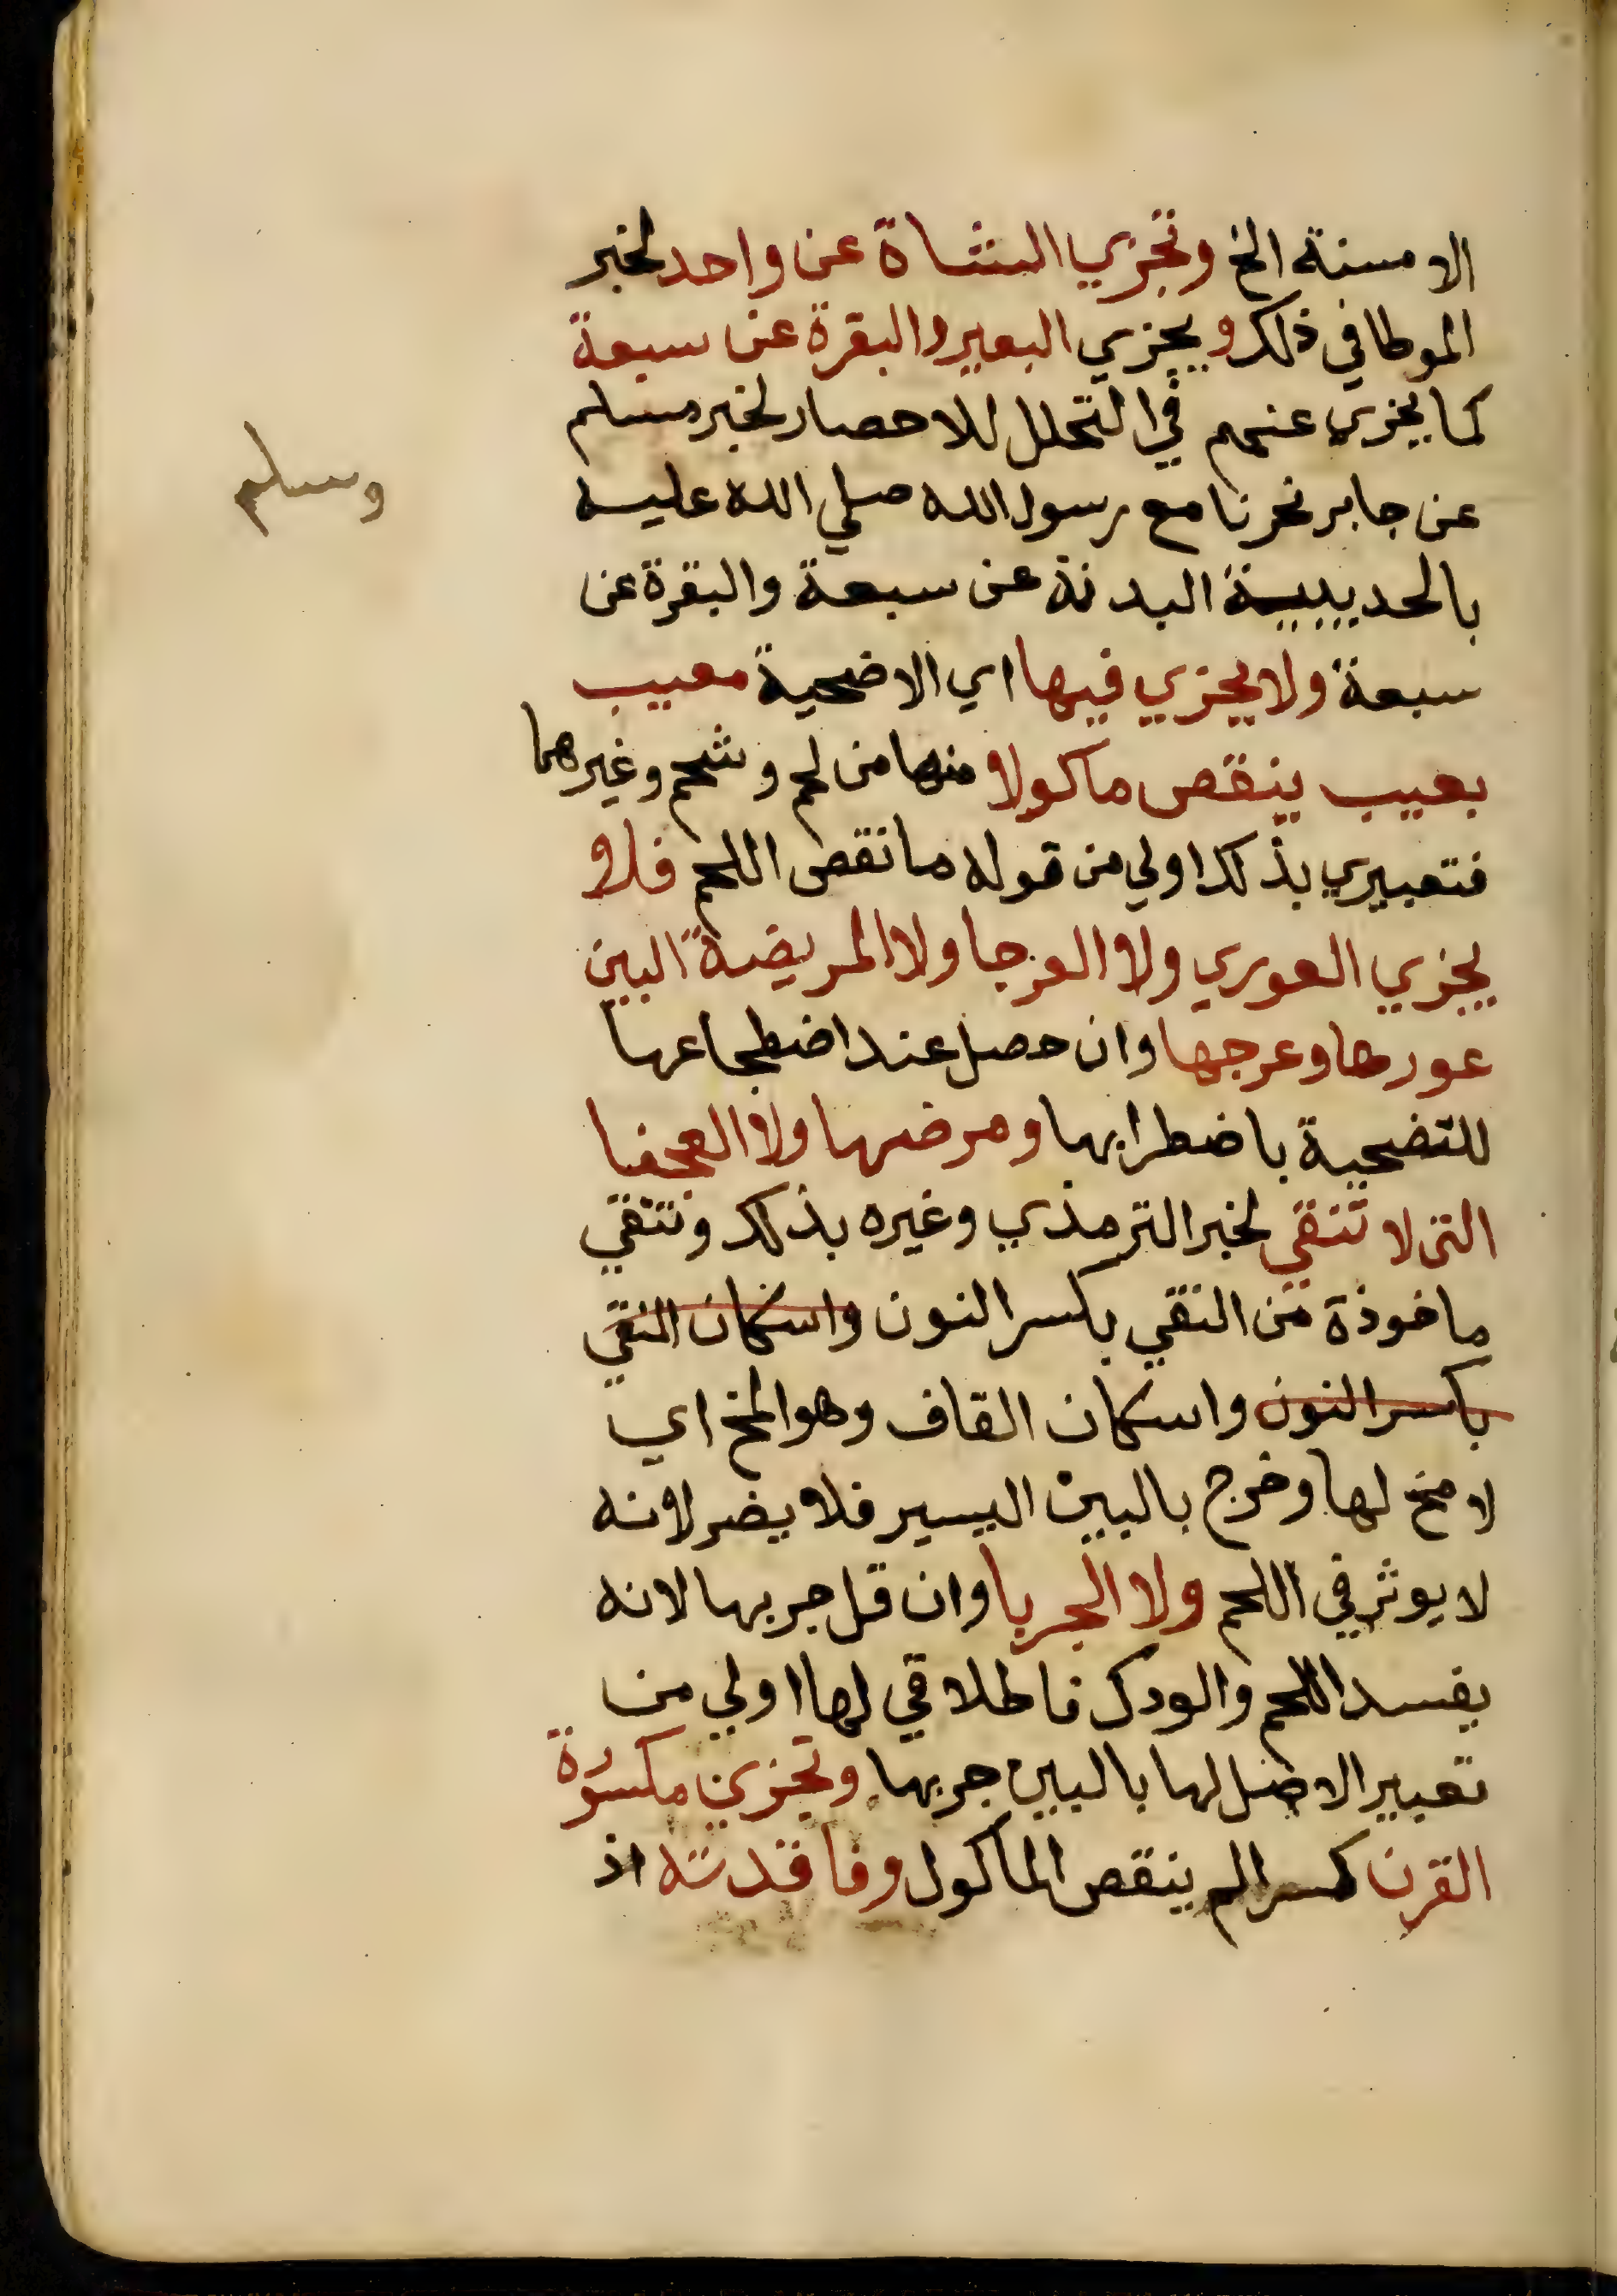 الا مسنة الخ وتجزي الشاة عن واحد لخبر
الموطا في ذلك ويجزي البعير والبقرة عن سبعة
كما يجزي عنهم في التحلل للاحصار لخبر مسلم
عن جابر نحرنا مع رسول الله صلي الله عليه
وسلم
بالحديبية البدنة عن سبعة والبقرة عن
سبعة ولا يجزي فيها اي الاضحية معيب
بعيب ينقص ماكولا منها من لحم وشحم وغيرهما
فتعبيري بذلك اولي من قوله ما نقص اللحم فلا
يجزي العوري ولا العرجا ولا المريضة البين
عورها وعرجها وان حصل عند اضطجاعها
للتضحية باضطرابها ومرضها ولا العجفا
التي لا تنقي لخبر الترمذي وغيره بذلك وتنقي
ماخوذة من النقي بكسر النون واسكان النقي
بكسر النون واسكان القاف وهو المخ اي
لا مخ لها وخرج بالبين اليسير فلا يضر لانه
لا يوثر في اللحم ولا الجربا وان قل جربها لانه
يفسد اللحم والودك فاطلاقي لها اولي من
تعبير الاصل لها بالبين جربها وتجزي مكسورة
القرن كسرا لم ينقص الماكول وفاقدته اذ